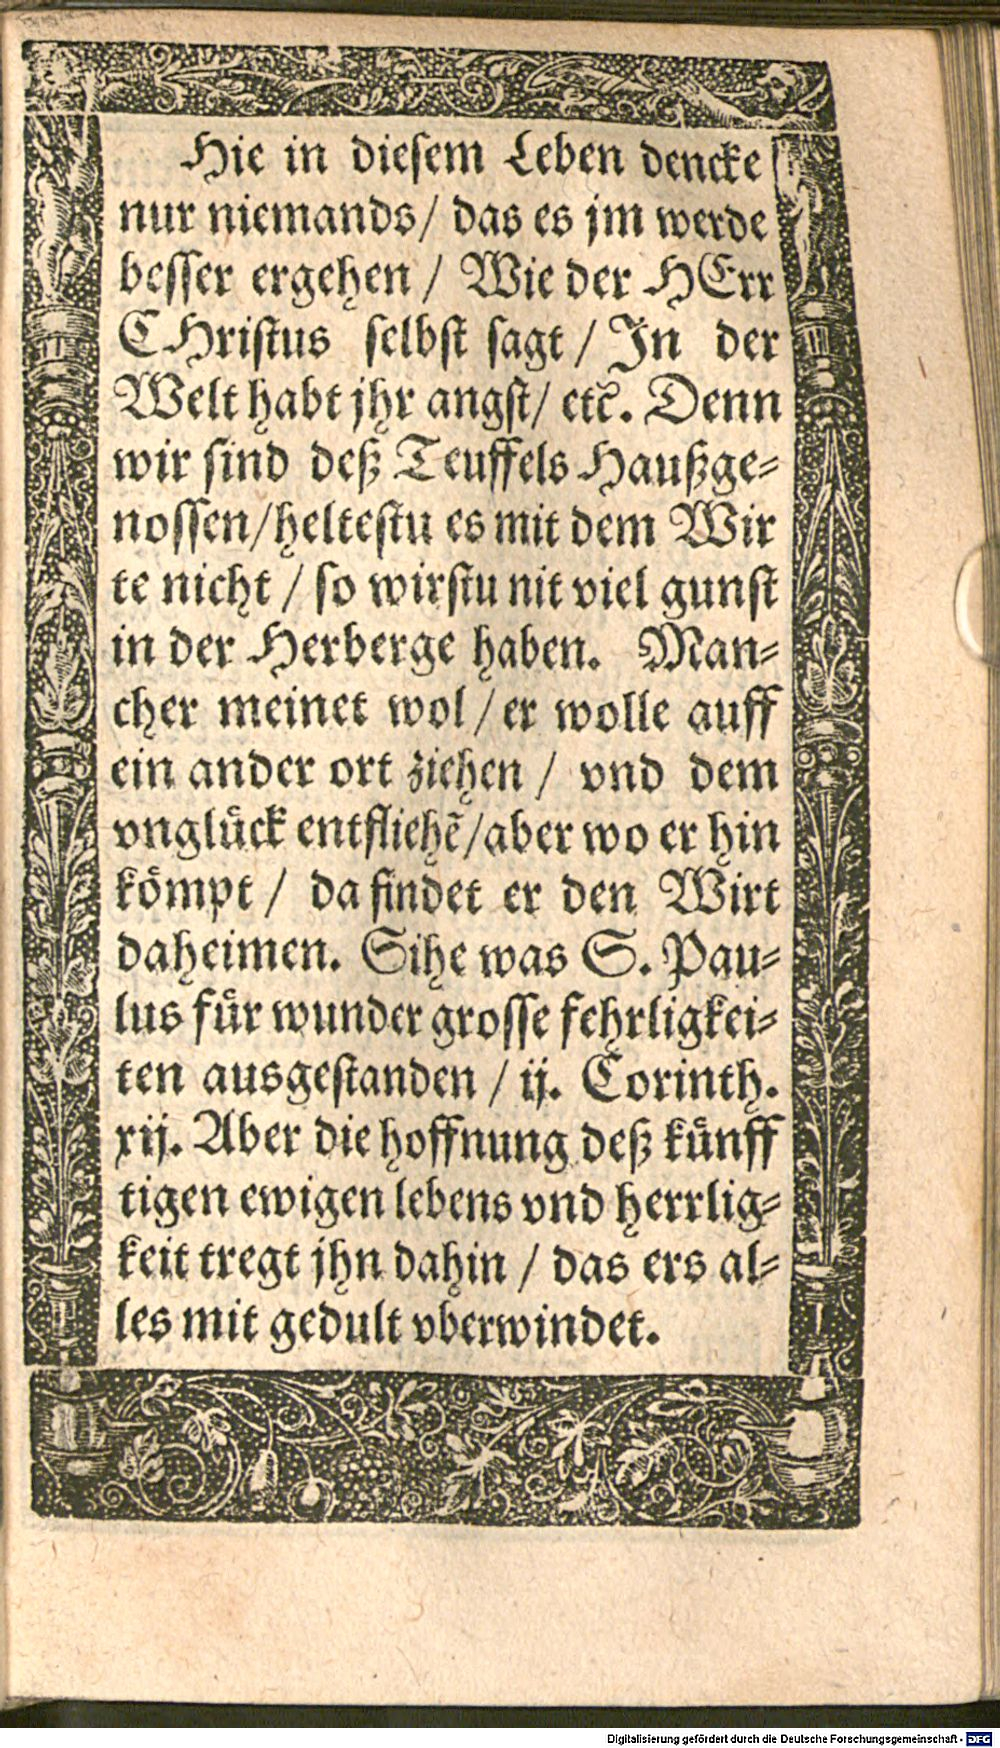 Hie in diesem Leben dencke
nur niemands/ das es jm werde
besser ergehen / Wie der HErr
CHristus selbst sagt / In der
Welt habt jhr angst/ etc̃. Denn
wir sind deß Teuffels Haußge-
nossen/heltestu es mit dem Wir
te nicht / so wirstu nit viel gunst
in der Herberge haben. Man-
cher meinet wol / er wolle auff
ein ander ort ziehen / vnd dem
vnglück entfliehẽ/aber wo er hin
kömpt / da findet er den Wirt
daheimen. Sihe was S. Pau-
lus für wunder grosse fehrligkei-
ten ausgestanden / ij. Corinth.
xij. Aber die hoffnung deß künff
tigen ewigen lebens vnd herrlig-
keit tregt jhn dahin / das ers al-
les mit gedult vberwindet.
Digitalisierung gefördert durch die Deutsche Forschungsgemeinschaft - DFG